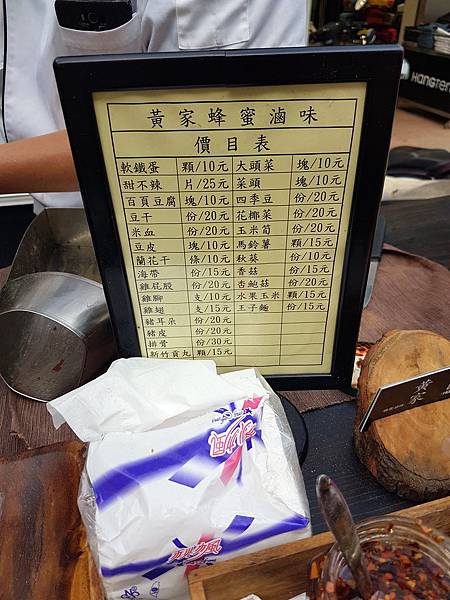 黃家蜂蜜滷味
價目表
軟鐵蛋 顆/10元 大頭菜 塊/10元
甜不辣 片/25元 菜頭 塊/10元
百頁豆腐 塊/10元 四季豆 份/20元
豆干 份/20元 花椰菜 份/20元
米血 份/20元 玉米筍 份/20元
豆皮 塊/10元 馬鈴薯 顆/15元
蘭花干 條/10元 秋葵 份/10元
海帶 份/15元 香菇 份/15元
雞屁股 份/20元 杏鮑菇 份/20元
雞腳 支/10元 水果玉米 顆/15元
雞翅 支/15元 王子麵 份/15元
豬耳朵 份/20元
豬皮 份/20元
排骨 份/30元
新竹貢丸 顆/15元
HANGTEN
黃家